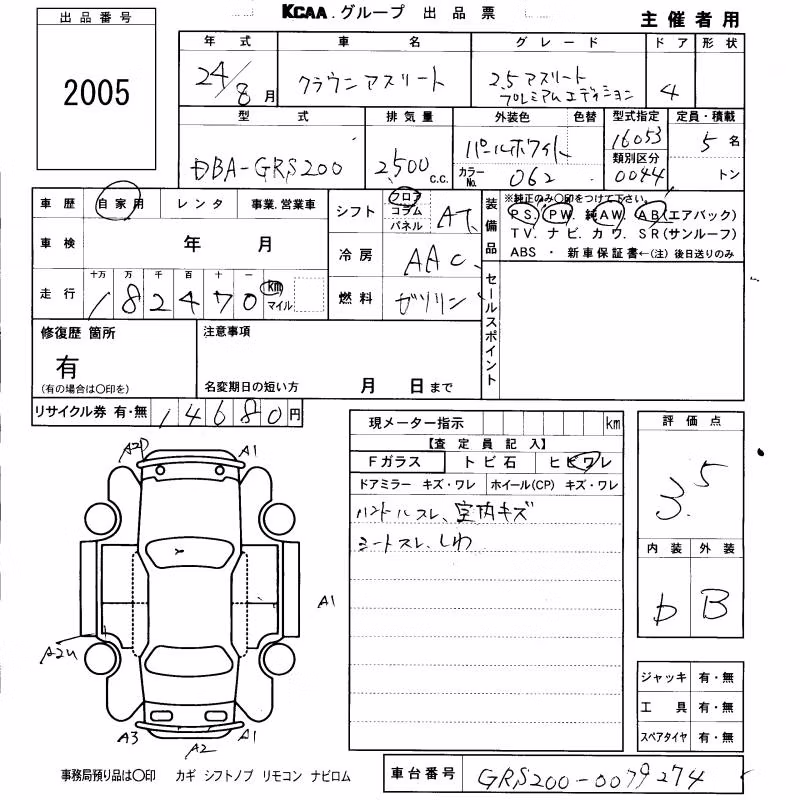 KCAA.グループ 出品票
主催者用
出品番号
2005
年式 車名 グレード ドア 形状
24/8月 クラウンアスリート 2.5 アスリート プレミアムエディション 4
型式 排気量 外装色 色替 型式指定 定員・積載
DBA-GRS200 2,500 c.c. パールホワイト 16053 5名
カラーNo. 062 類別区分 0044 トン
車歴 自家用 レンタ 事業、営業車
シフト フロア コラム パネル AT
装備品 ※純正のみ○印をつけて下さい。
PS. PW. 純AW. AB(エアバック)
TV. ナビ. カワ. SR(サンルーフ)
ABS ・ 新車保証書←(注)後日送りのみ
車検 年 月
冷房 AAC
走行 十万 万 千 百 十 一
182470 km マイル
燃料 ガソリン
セールスポイント
修復歴 箇所
有
(有の場合は○印を)
注意事項
名変期日の短い方 月 日まで
リサイクル券 有・無 14680円
現メーター指示 km
【査定員記入】
Fガラス トビ石 ヒビワレ
ドアミラー キズ・ワレ ホイール(CP) キズ・ワレ
ハンドルスレ、室内キズ
シートスレ、しわ
評価点
3.5
内装 外装
D B
A2P A1
A1
A2U
A3 A2 A1
ジャッキ 有・無
工具 有・無
スペアタイヤ 有・無
事務局預り品は○印 カギ シフトノブ リモコン ナビロム
車台番号 GRS200-0079274